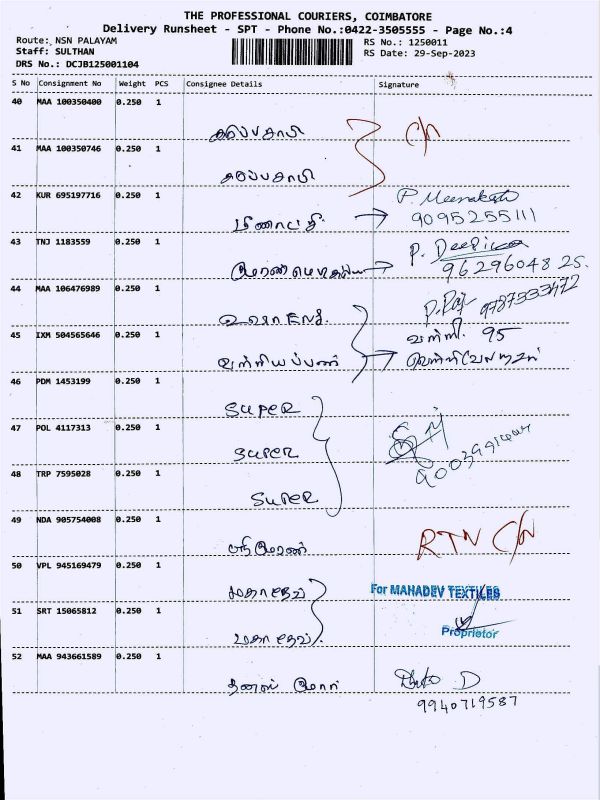 THE PROFESSIONAL COURIERS, COIMBATORE
Delivery Runsheet - SPT - Phone No.:0422-3505555 - Page No.:4
Route: NSN PALAYAM
Staff: SULTHAN
DRS No.: DCJB125001104
RS No.: 1250011
RS Date: 29-Sep-2023
S No Consignment No Weight PCS Consignee Details Signature
40 MAA 100350400 0.250 1
C/N
41 MAA 100350746 0.250 1
42 KUR 695197716 0.250 1
மீனாட்சி
P. Meenakshi
9095255111
43 TNJ 1183559 0.250 1
P. Deepika
96296048 25
44 MAA 106476989 0.250 1
உஷா ENG. 9787333472
45 IXM 504565646 0.250 1
வள்ளி 95
வள்ளியப்பன்
46 PDM 1453199 0.250 1
SUPER
47 POL 4117313 0.250 1
SUPER
48 TRP 7595028 0.250 1
SUPER
49 NDA 905754008 0.250 1
RTN C/N
50 VPL 945169479 0.250 1
மகாதேவ் For MAHADEV TEXTILES
51 SRT 15065812 0.250 1
மகாதேவ் Proprietor
52 MAA 943661589 0.250 1
D
9940719587